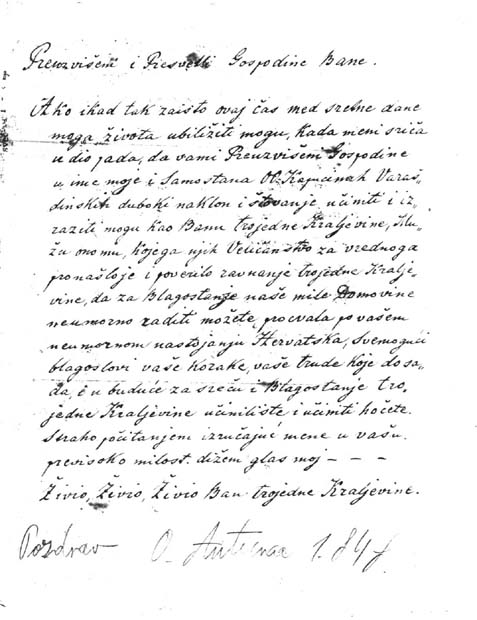 Preuzvišeni i Presvetli Gospodine Bane.
Ako ikad tak zaisto ovaj čas med sretne dane
moga života ubiližiti mogu, kada meni srića
u dio pada, da vami Preuzvišeni Gospodine
u ime moje i Samostana OO Kapucinah Varaš-
dinskih duboki naklon i štovanje učiniti i iz,
raziti mogu kao Banu trojedne Kraljevine,
žu onomu, kojega njih Veličanstvo za vrednoga
pronašloje i poverilo ravnanje trojedne Kralje,
vine, da za Blagostanje naše mile Domovine
neumorno raditi možete, procvala po vašem
neumornom nastojanju Hervatska, Svemogući
blagoslovi vaše korake, vaše trude koje do sa,
da, i u buduće za sreću i Blagostanje tro,
jedne Kraljevine učiniliste i učiniti hoćete.
Straho počitanjem izručajuć mene u vašu
previsoko milost. dižem glas moj — — —
Živio, Živio, Živio Ban trojedne Kraljevine.
Pozdrav O. 184